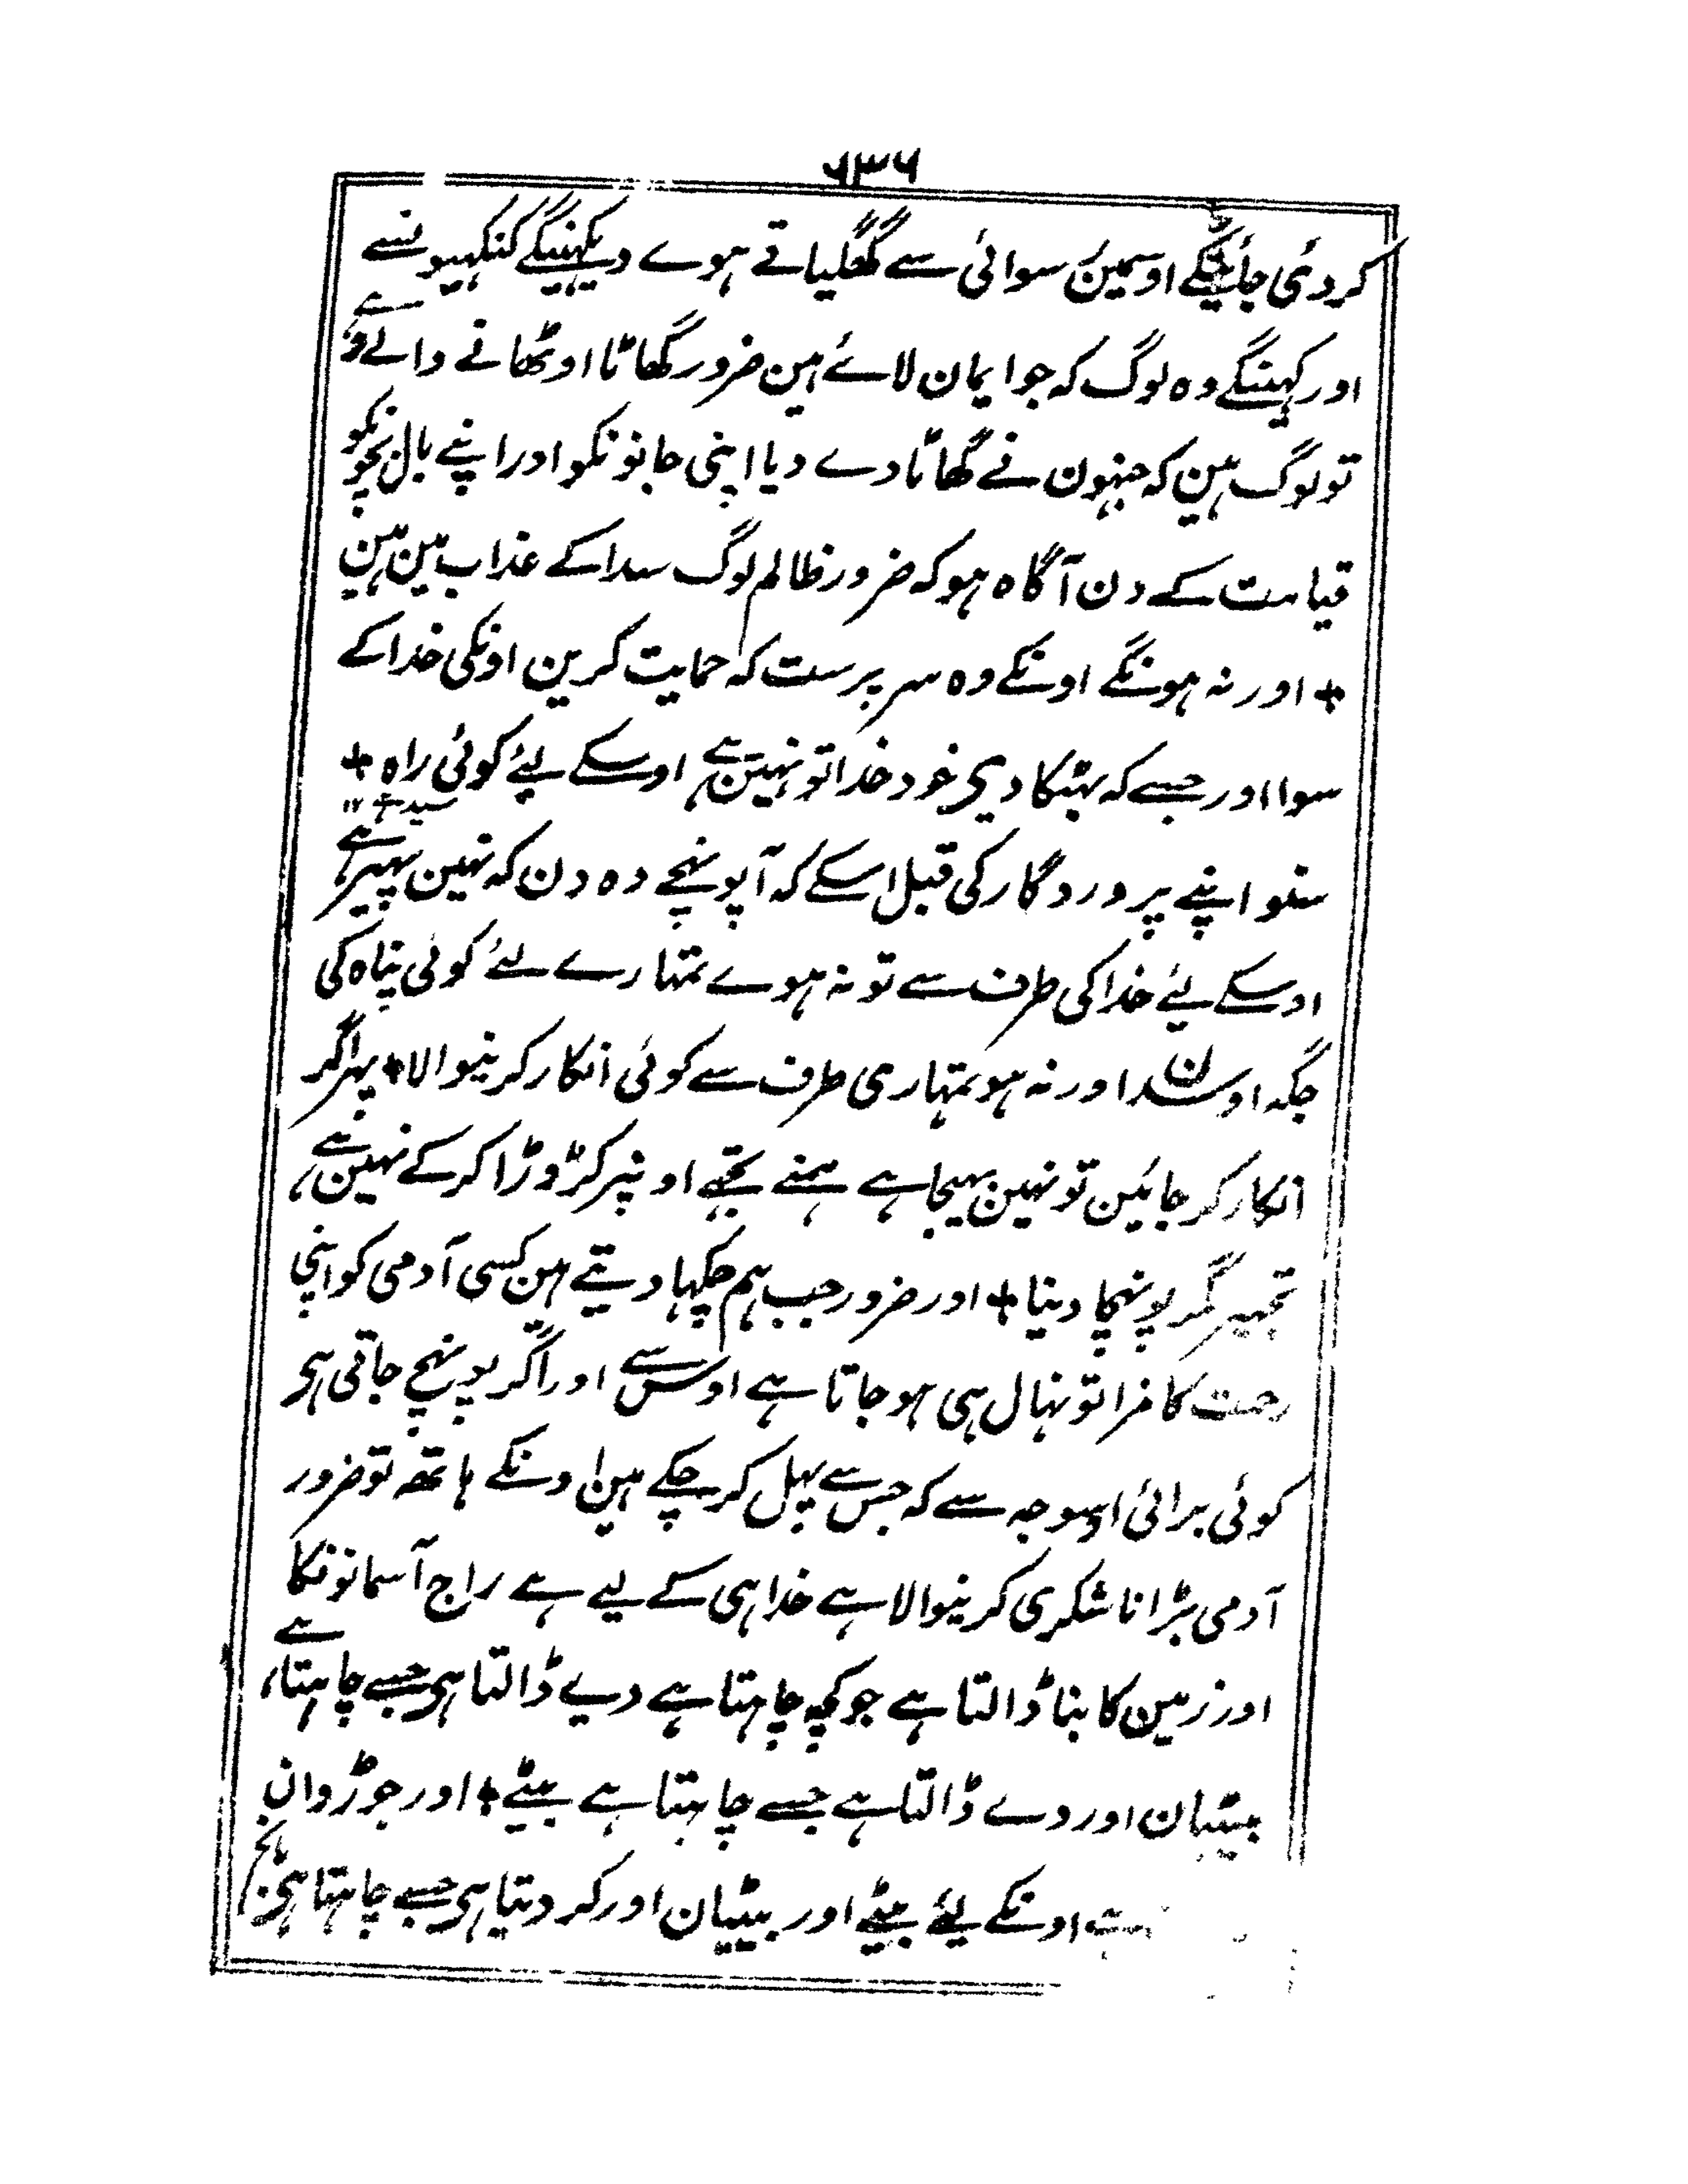 ۶۳۶
کردئی جائینگے اوسمین سوائی سے گھگلیاتے ہوے دیکہنیگے کنکہیونسے
اور کہینگے وہ لوگ کہ جو ایمان لائے ہین ضرور گھاٹا اوٹھانے والے وے
تو لوگ ہین کہ جنہون نے گھاٹا دے دیا اپنی جانونکو اور اپنے بال بچونکو
قیامت کے دن آگاہ ہو کہ ضرور ظالم لوگ سدا کے عذاب مین ہین
+ اور نہ ہونگے اونکے وہ سرپرست کہ حمایت کرین اونکی خدا کے
سوا اور جسے کہ بہٹکا دیی خود خدا تو نہین ہے اوسکے لیئے کوئی راہ +
سنو اپنے پروردگار کی قبل اسکے کہ آپونہچے وہ دن کہ نہین پہیر ہے
اوسکے لیئے خدا کی طرف سے تو نہ ہوے تمہارے لئے کوئی پناہ کی
جگہ اوسدن اور نہ ہو تمہاری طرف سے کوئی انکار کرنیوالا + پہر اگر
انکار کر جائین تو نہین بہیجا ہے ہمنے تجہے اونپر کڑوڑا کر کے نہین ہے
تجہپر مگر پونہچا دینا + اور ضرور جب ہم چکہا دیتے ہین کسی آدمی کو اپنی
رحمت کا مزا تو نہال ہی ہو جاتا ہے اوس سے اور اگر پونہچ جاتی ہی
کوئی برائی اوسوجہ سے کہ جس سے پہل کر چکے ہین اونکے ہاتھ تو ضرور
آدمی بڑا ناشکری کرنیوالا ہے خدا ہی کے لیے ہے راج آسمانونکا
اور زمین کا بنا ڈالتا ہے جو کچہ چاہتا ہے دیے ڈالتا ہی جسے چاہتا ہے
بیٹیان اور دے ڈالتا ہے جسے چاہتا ہے بیٹے + اور جوڑوان
اونکے لیئے بیٹے اور بیٹیان اور کر دیتا ہی جسے چاہتا ہی بانجہ